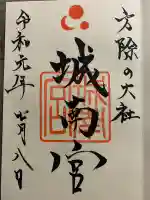 方除の大社
城南宮
令和元年十一月八日